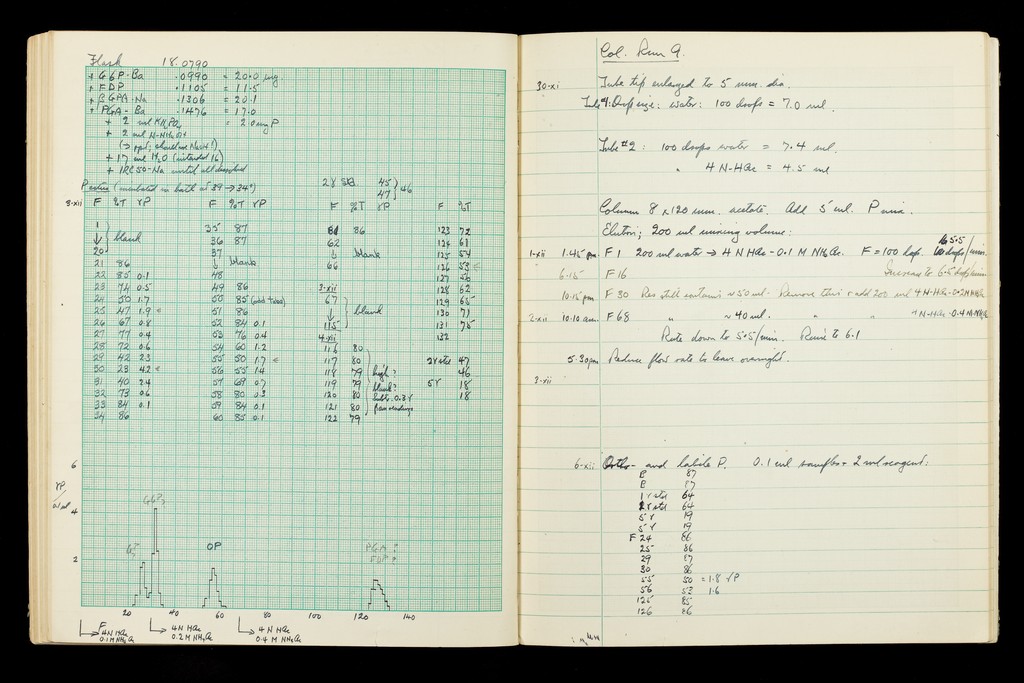 Flask 18.0790
+ G6P-Ba .0990 = 20.0 mg
+ FDP .1105 = 11.5
+ βGPA-Na .1306 = 20.1
+ PGA-Ba .1476 = 17.0
+ 2 ml KH₂PO₄ = 2.0 mg P
+ 2 ml N-NH₄
+ 17 ml H₂O (intended 16)
+ IRC50-Na until all dissolved
2γ Std. 45
47 } 46
3-xii F %T γP F %T γP F %T γP F %T
1 ↓ 20 } blank
21 86
22 85 0.1
23 74 0.5
24 50 1.7
25 47 1.9
26 67 0.8
27 77 0.4
28 72 0.6
29 42 2.3
30 23 4.2
31 40 2.4
32 73 0.6
33 84 0.1
34 86
35 87
36 87
37 ↓ blank
48
49 86
50 85 (odd tubes)
51 86
52 84 0.1
53 76 0.4
54 60 1.2
55 50 1.7
56 55 1.4
57 69 0.7
58 80 0.3
59 84 0.1
60 85 0.1
61 86
62
↓ blank
66
3-xii
67 ↓ 115 } blank
4-xii
116 80
117 80
118 79 high?
119 79 blank?
120 80 subtr. 0.3γ
121 80
122 79
123 72
124 61
125 54
126 53
127 56
128 62
129 65
130 71
131 75
132
2γ std 47
46
5γ 18
18
6
γP / 0.1 ml
4
2
G6P
OP
PGA ?
FDP ?
20 40 60 80 100 120 140
F
4N HAc 0.1M NH₄Ac
4N HAc 0.2M NH₄Ac
4N HAc 0.4M NH₄Ac
Col. Run 9.
30-xi Tube tip enlarged to 5 mm. dia.
Tube #1: Drop size: water: 100 drops = 7.0 ml.
Tube #2: 100 drops water = 7.4 ml.
" 4 N-HAc = 4.5 ml
Column 8 x 120 mm. acetate. Add 5 ml. P mix.
Elution; 200 ml mixing volume:
1-xii 1.45 pm F 1 200 ml water → 4 N HAc - 0.1 M NH₄Ac. F = 100 drops. 5.5 drops/min.
6.15 F 16 Increase to 6.5 drops/min.
10.15 pm F 30 Res still contains ~50 ml. Remove this + add 200 ml 4 N-HAc-0.2M NH₄Ac
2-xii 10.10 am. F 68 " ~40 ml. " " 4 N-HAc-0.4 M-NH₄Ac
Rate down to 5.5/min. Raise to 6.1
5.30 pm Reduce flow rate to leave overnight.
3-xii
6-xii Ortho- and labile P. 0.1 ml samples + 2 ml reagent:
B 87
B 87
1γ std 64
2γ std 64
5γ 19
5γ 19
F 24 86
25 86
29 87
30 86
55 50 = 1.8 γP
56 53 1.6
125 85
126 86